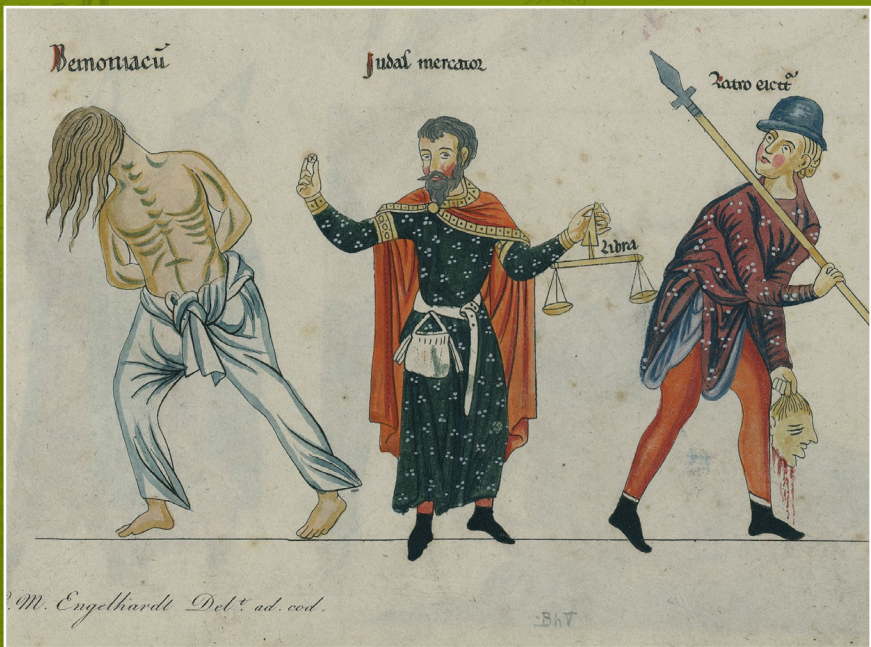 Demoniacū
Judas mercator
Latro eictꝰ
Libra
M. Engelhardt Delt. ad. cod.